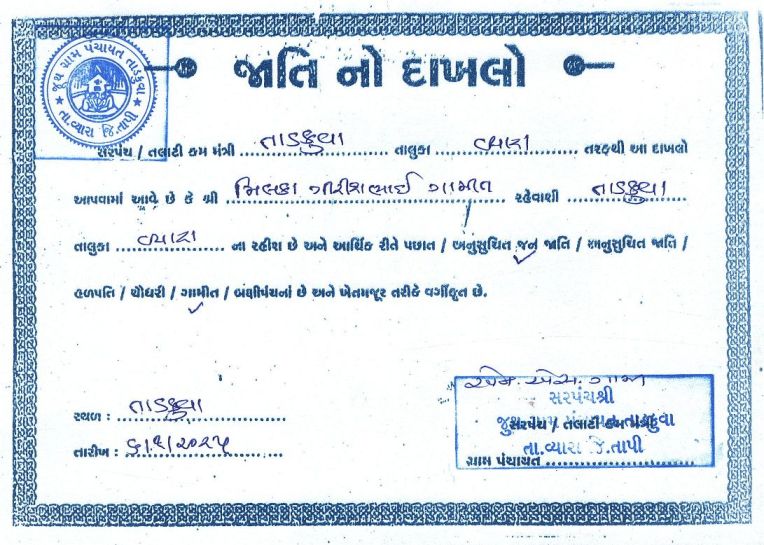 જાતિ નો દાખલો
જૂથ ગ્રામ પંચાયત તાડકુવા
તા.વ્યારા જિ.તાપી
સરપંચ / તલાટી કમ મંત્રી તાડકુવા તાલુકા વ્યારા તરફથી આ દાખલો
આપવામાં આવે છે કે શ્રી ગીરીશભાઈ ગામીત રહેવાશી તાડકુવા
તાલુકા વ્યારા ના રહીશ છે અને આર્થિક રીતે પછાત / અનુસુચિત જન જાતિ / અનુસુચિત જાતિ /
હળપતિ / ચૌધરી / ગામીત / બક્ષીપંચનાં છે અને ખેતમજૂર તરીકે વર્ગીકૃત છે.
સ્થળ : તાડકુવા
તારીખ :
સરપંચશ્રી
સરપંચ / તલાટી કમ મંત્રી
જુથ ગ્રામ પંચાયત તાડકુવા
તા.વ્યારા જિ.તાપી
ગ્રામ પંચાયત